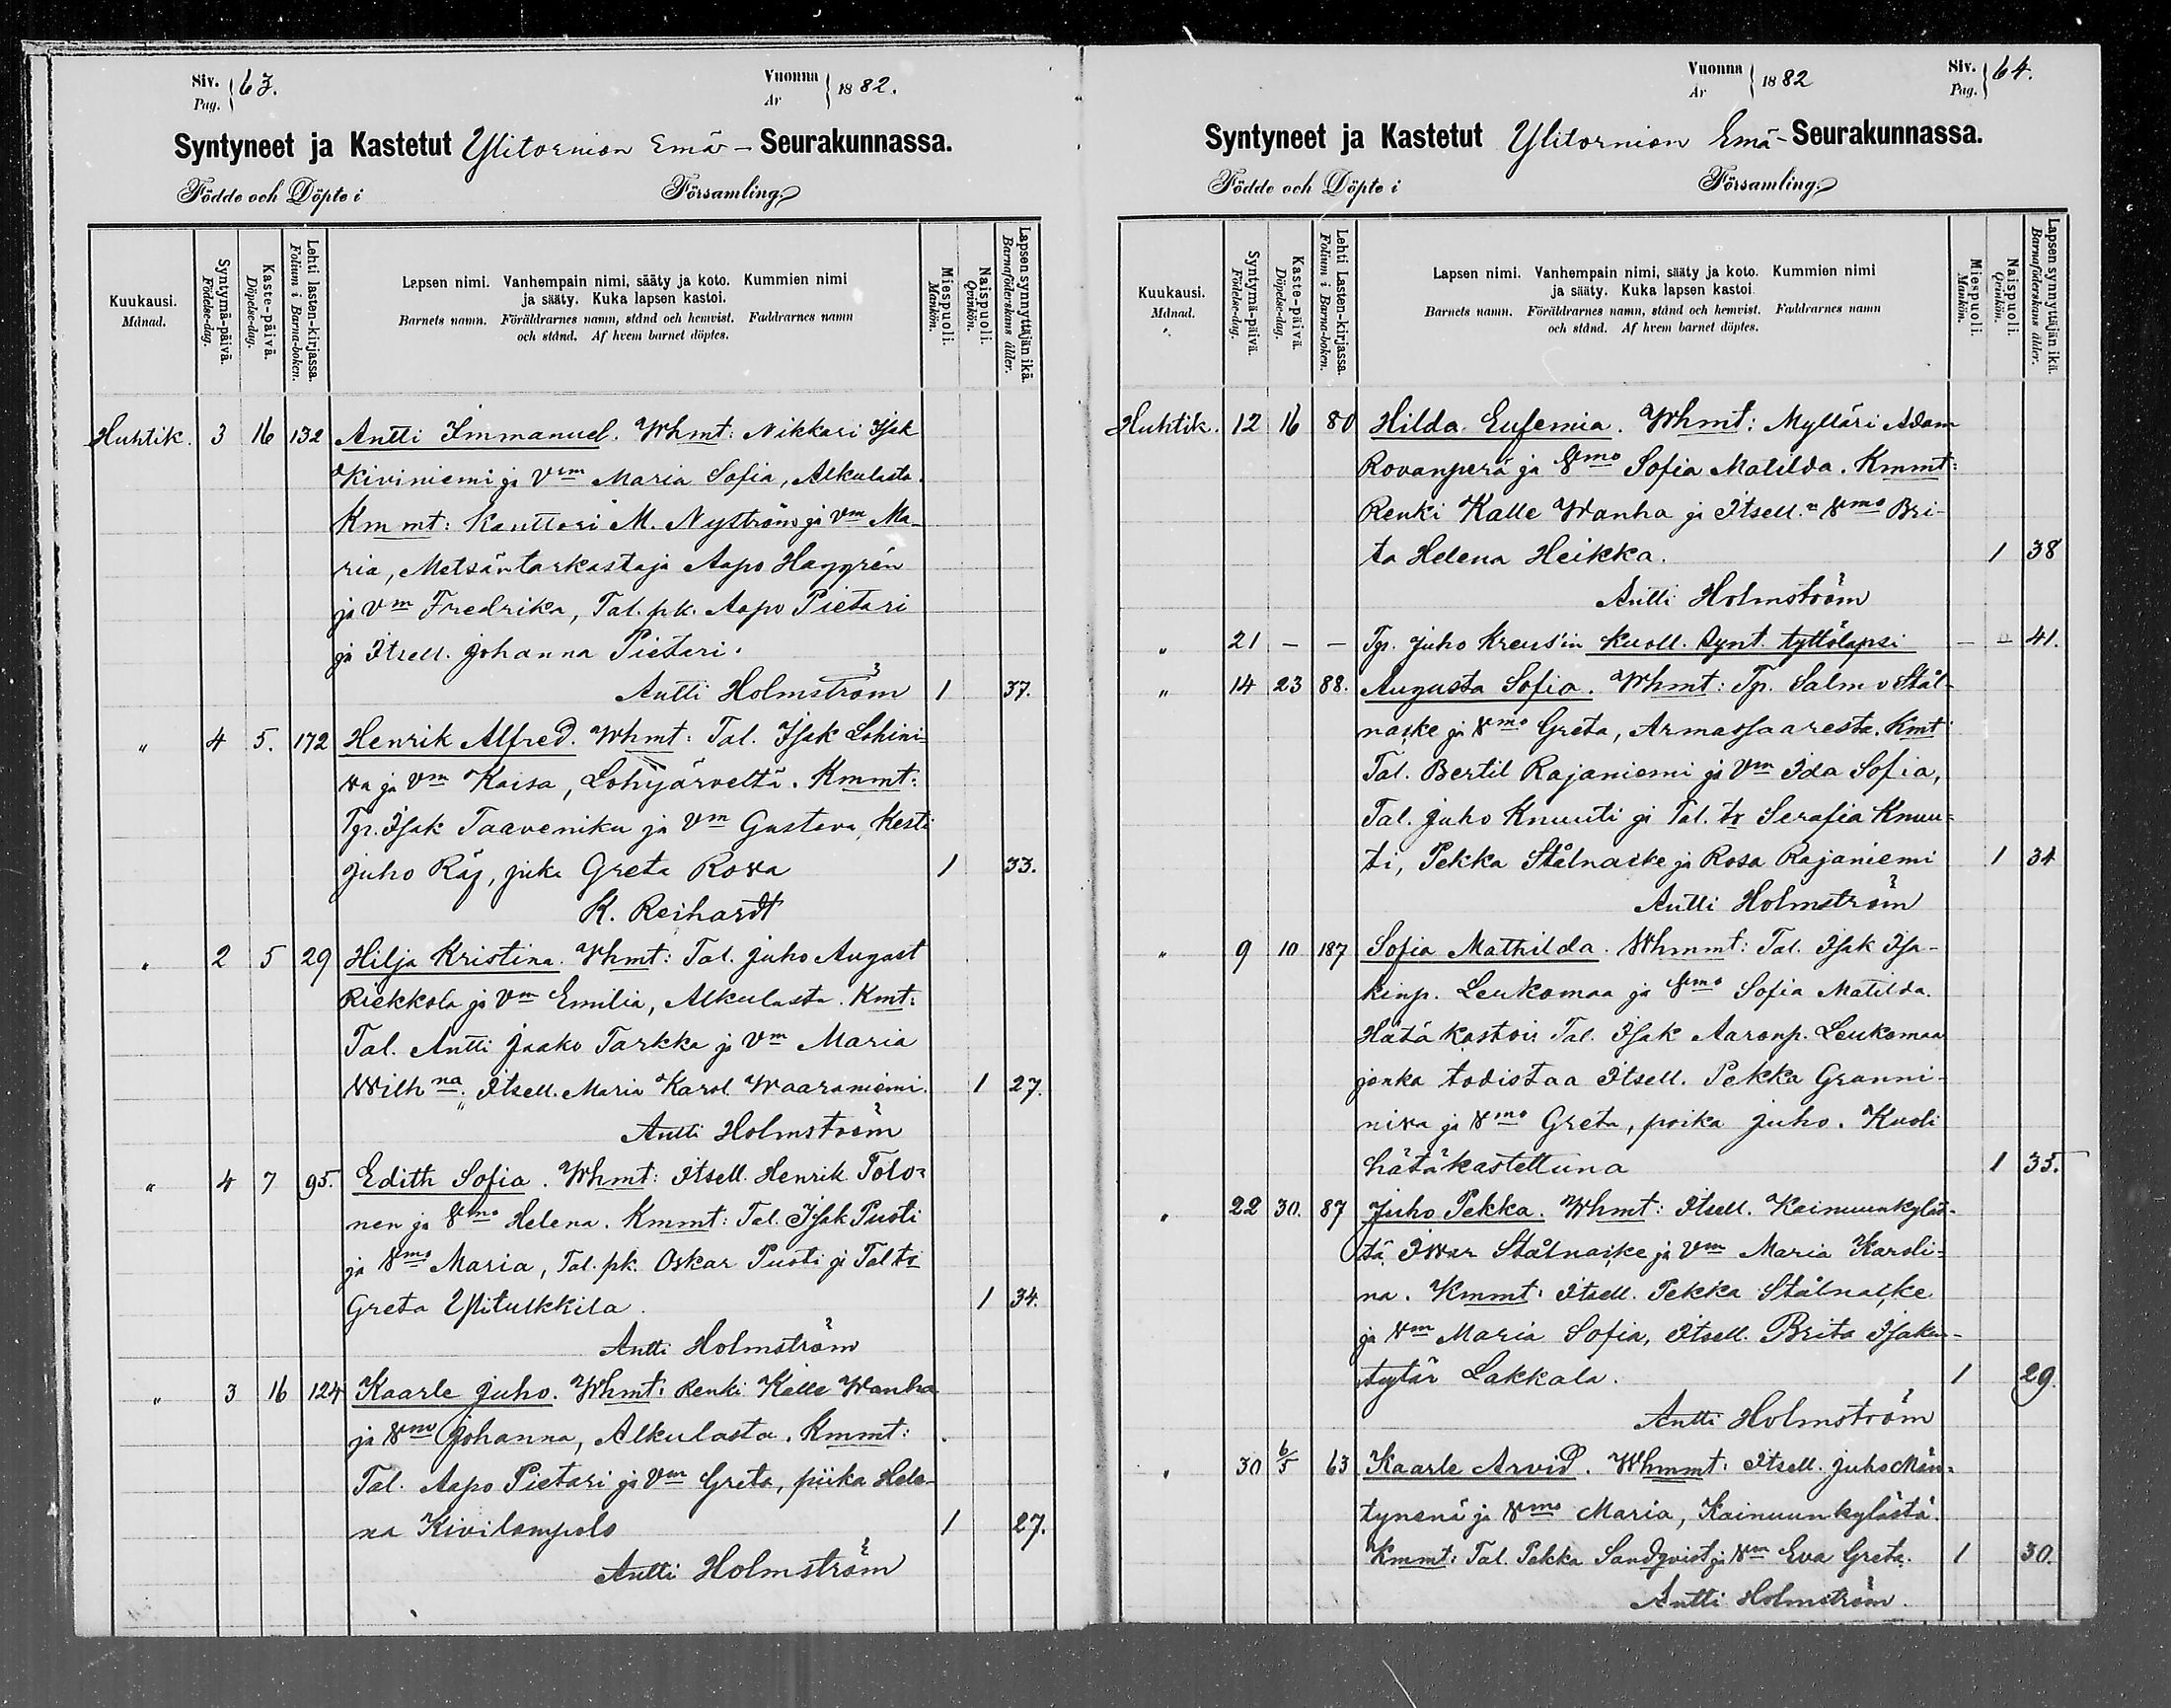 Siv. 63.
Pag.
Vuonna 1882.
Ar
Syntyneet ja Kastetut Ylitornion Emä- Seurakunnassa.
Födde och Döpte i Församling
Kuukausi.
Månad.
Syntymä-päivä.
Födelse-dag.
Kaste-päivä.
Döpelse-dag.
Lehti lasten-kirjassa.
Folium i Barna-boken.
Lapsen nimi. Vanhempain nimi, sääty ja koto. Kummien nimi
ja sääty. Kuka lapsen kastoi.
Barnets namn. Föräldrarnes namn, stånd och hemvist. Faddrarnes namn
och stånd. Af hvem barnet döptes.
Miespuoli.
Mankön.
Naispuoli.
Qvinkön.
Lapsen synnyttäjän ikä.
Barnaföderskans ålder.
Huhtik. 3 16 132 Antti Immanuel. Whmt: Nikkari Isak
Kiviniemi ja Vm Maria Sofia, Alkulasta.
Kmmt: Kanttori M. Nyström ja Vm Ma-
ria, Metsäntarkastaja Aapo Haggrén
ja Vm Fredrika, Tal. pk. Aapo Pietari
ja Itsell. Johanna Pietari.
Antti Holmström 1 37.
" 4 5. 172 Henrik Alfred. Whmt: Tal. Isak Lohini-
va ja Vm Kaisa, Lohijärveltä. Kmmt:
Tp. Isak Taaveniku ja Vm Gustava, Kesti
Juho Räj, piika Greta Rova 1 33.
K. Reihardt
" 2 5 29 Hilja Kristina. Whmt: Tal. Juho August
Riekkola ja Vm Emilia, Alkulasta. Kmt:
Tal. Antti Jaako Tarkka ja Vm Maria
Wilhna. Itsell. Maria Karol. Waaraniemi. 1 27.
Antti Holmström
" 4 7 95. Edith Sofia. Whmt: Itsell. Henrik Tolo-
nen ja Vmo Helena. Kmmt: Tal. Isak Puoti
ja Vmo Maria, Tal. pk. Oskar Puoti ja Tal tr
Greta Ylitulkkila. 1 34.
Antti Holmström
" 3 16 124 Kaarle Juho. Whmt: Renki Kalle Wanha
ja Vmo Johanna, Alkulasta. Kmmt:
Tal. Aapo Pietari ja Vm Greta, piika Hele-
na Kivilompolo 1 27.
Antti Holmström
Vuonna 1882
Ar
Siv. 64.
Pag.
Syntyneet ja Kastetut Ylitornion Emä- Seurakunnassa.
Födde och Döpte i Församling
Kuukausi.
Månad.
Syntymä-päivä.
Födelse-dag.
Kaste-päivä.
Döpelse-dag.
Lehti Lasten-kirjassa.
Folium i Barna-boken.
Lapsen nimi. Vanhempain nimi, sääty ja koto. Kummien nimi
ja sääty. Kuka lapsen kastoi
Barnets namn. Föräldrarnes namn, stånd och hemvist. Faddrarnes namn
och stånd. Af hvem barnet döptes.
Miespuoli.
Mankön.
Naispuoli.
Qvinkön.
Lapsen synnyttäjän ikä.
Barnaföderskans ålder.
Huhtik. 12 16 80 Hilda Eufemia. Whmt: Mylläri Adam
Rovanperä ja Vmo Sofia Matilda. Kmmt:
Renki Kalle Wanha ja Itsell. Vmo Bri-
ta Helena Heikka. 1 38
Antti Holmström
" 21 - - Tp. Juho Kreus'in kuoll. synt. tyttölapsi - 41.
" 14 23 88. Augusta Sofia. Whmt: Tp. Salm. Stål-
nacke ja Vmo Greta, Armassaaresta. Kmt
Tal. Bertil Rajaniemi ja Vm Ida Sofia,
Tal. Juho Knuuti ja Tal. tr Serafia Knuu-
ti, Pekka Stålnacke ja Rosa Rajaniemi 1 34
Antti Holmström
" 9 10 187 Sofia Mathilda. Whmmt: Tal. Isak Isa-
kinp. Leukomaa ja Vmo Sofia Matilda.
Hätäkastoi Tal. Isak Aaronp. Leukomaa
jonka todistaa Itsell. Pekka Granni-
niva ja Vmo Greta, poika Juho. Kuoli
hätäkastettuna 1 35.
" 22 30. 87 Juho Pekka. Whmt: Itsell. Kainuunkyläs-
tä Iwar Stålnacke ja Vm Maria Karoli-
na. Kmmt: Itsell. Pekka Stålnacke
ja Vm Maria Sofia, Itsell. Brita Isakin-
tytär Lakkala. 1 29.
Antti Holmström
" 30 6/5 63 Kaarle Arvid. Whmmt: Itsell. Juho Män-
tynenä ja Vmo Maria, Kainuunkylästä.
Kmmt: Tal. Pekka Sandqvist ja Vm Eva Greta. 1 30.
Antti Holmström.